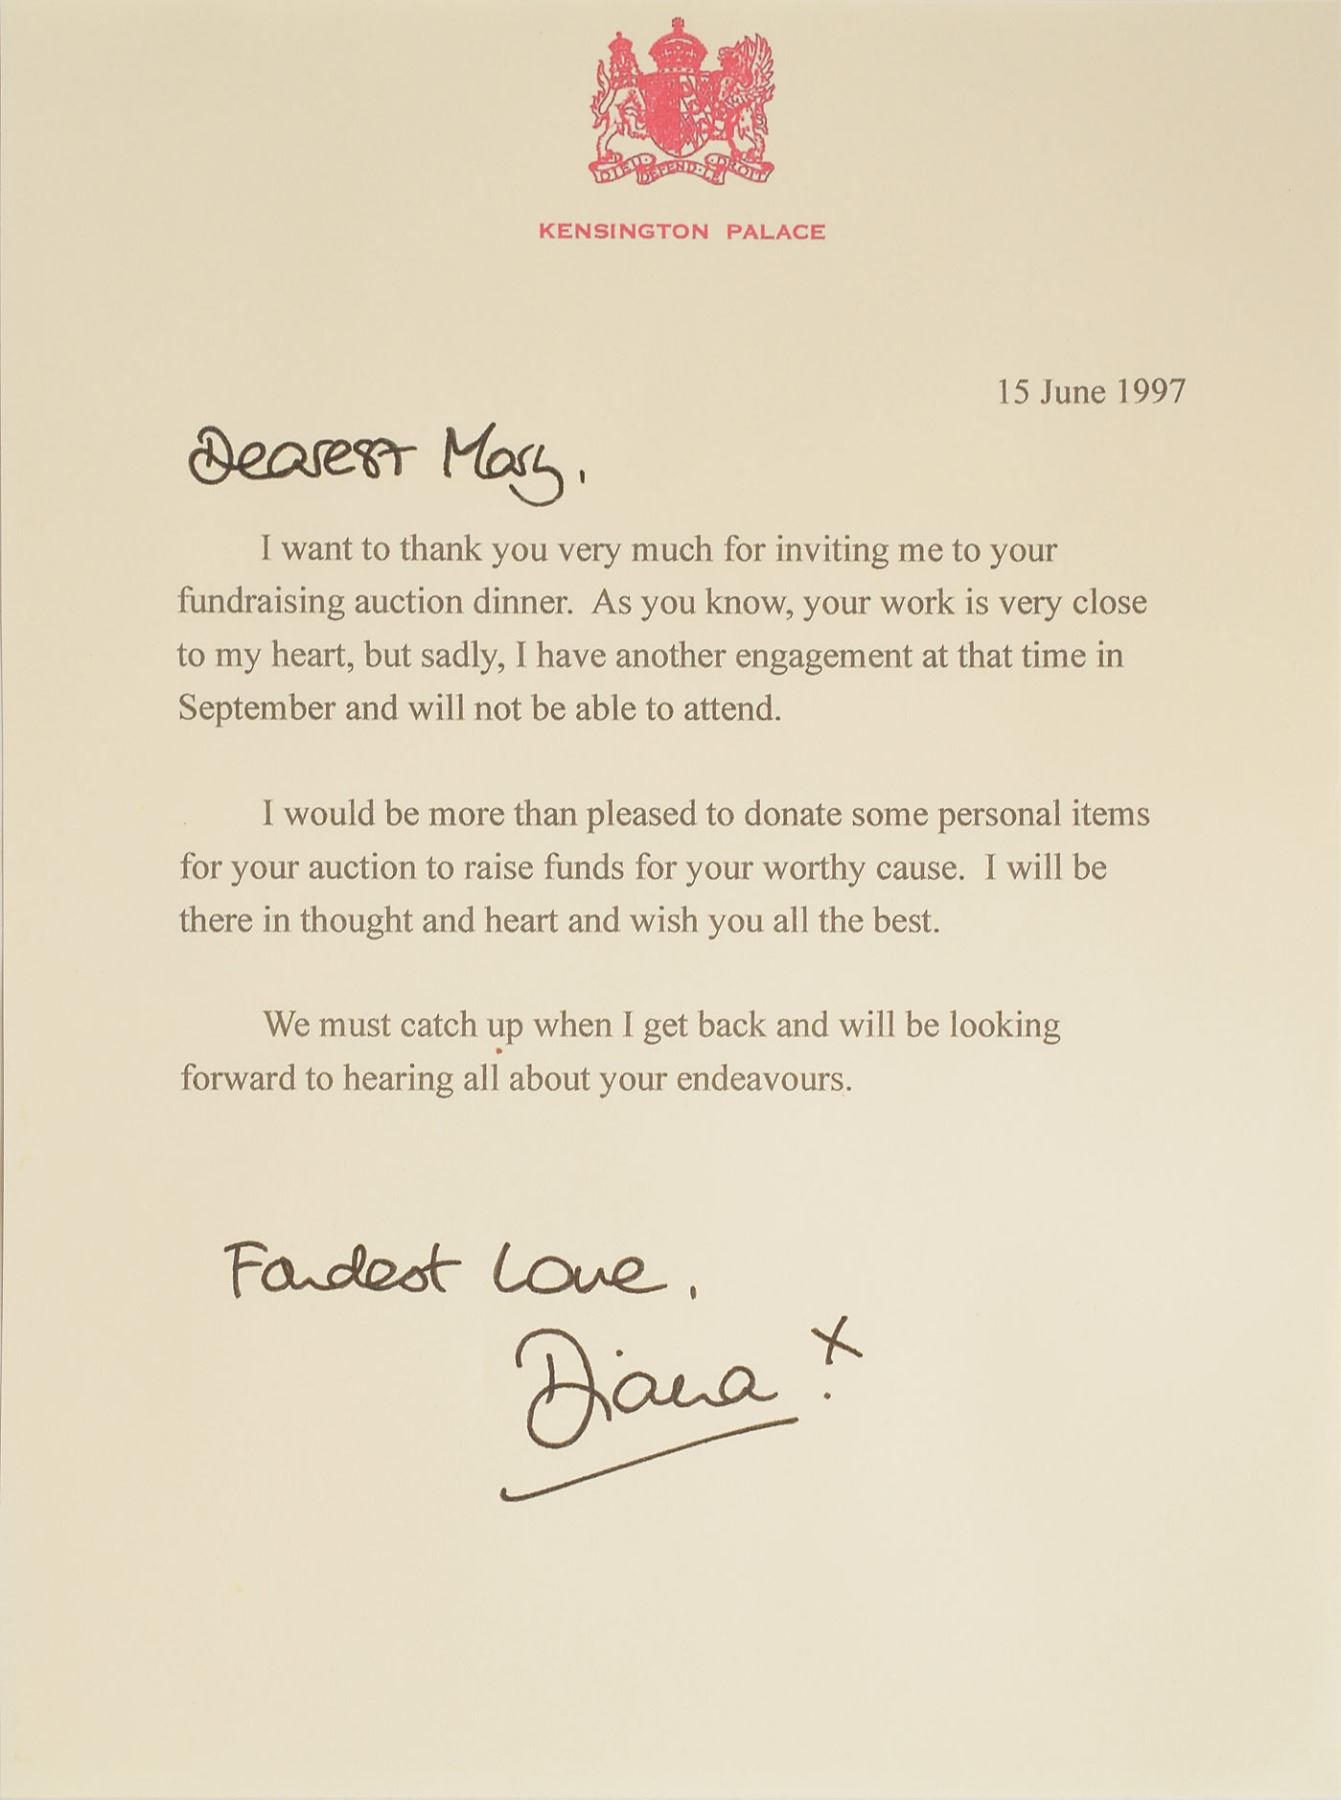 DIEU DEFEND LE DROIT
KENSINGTON PALACE
15 June 1997
Dearest Mary,
I want to thank you very much for inviting me to your
fundraising auction dinner. As you know, your work is very close
to my heart, but sadly, I have another engagement at that time in
September and will not be able to attend.
I would be more than pleased to donate some personal items
for your auction to raise funds for your worthy cause. I will be
there in thought and heart and wish you all the best.
We must catch up when I get back and will be looking
forward to hearing all about your endeavours.
Fondest Love,
Diana x